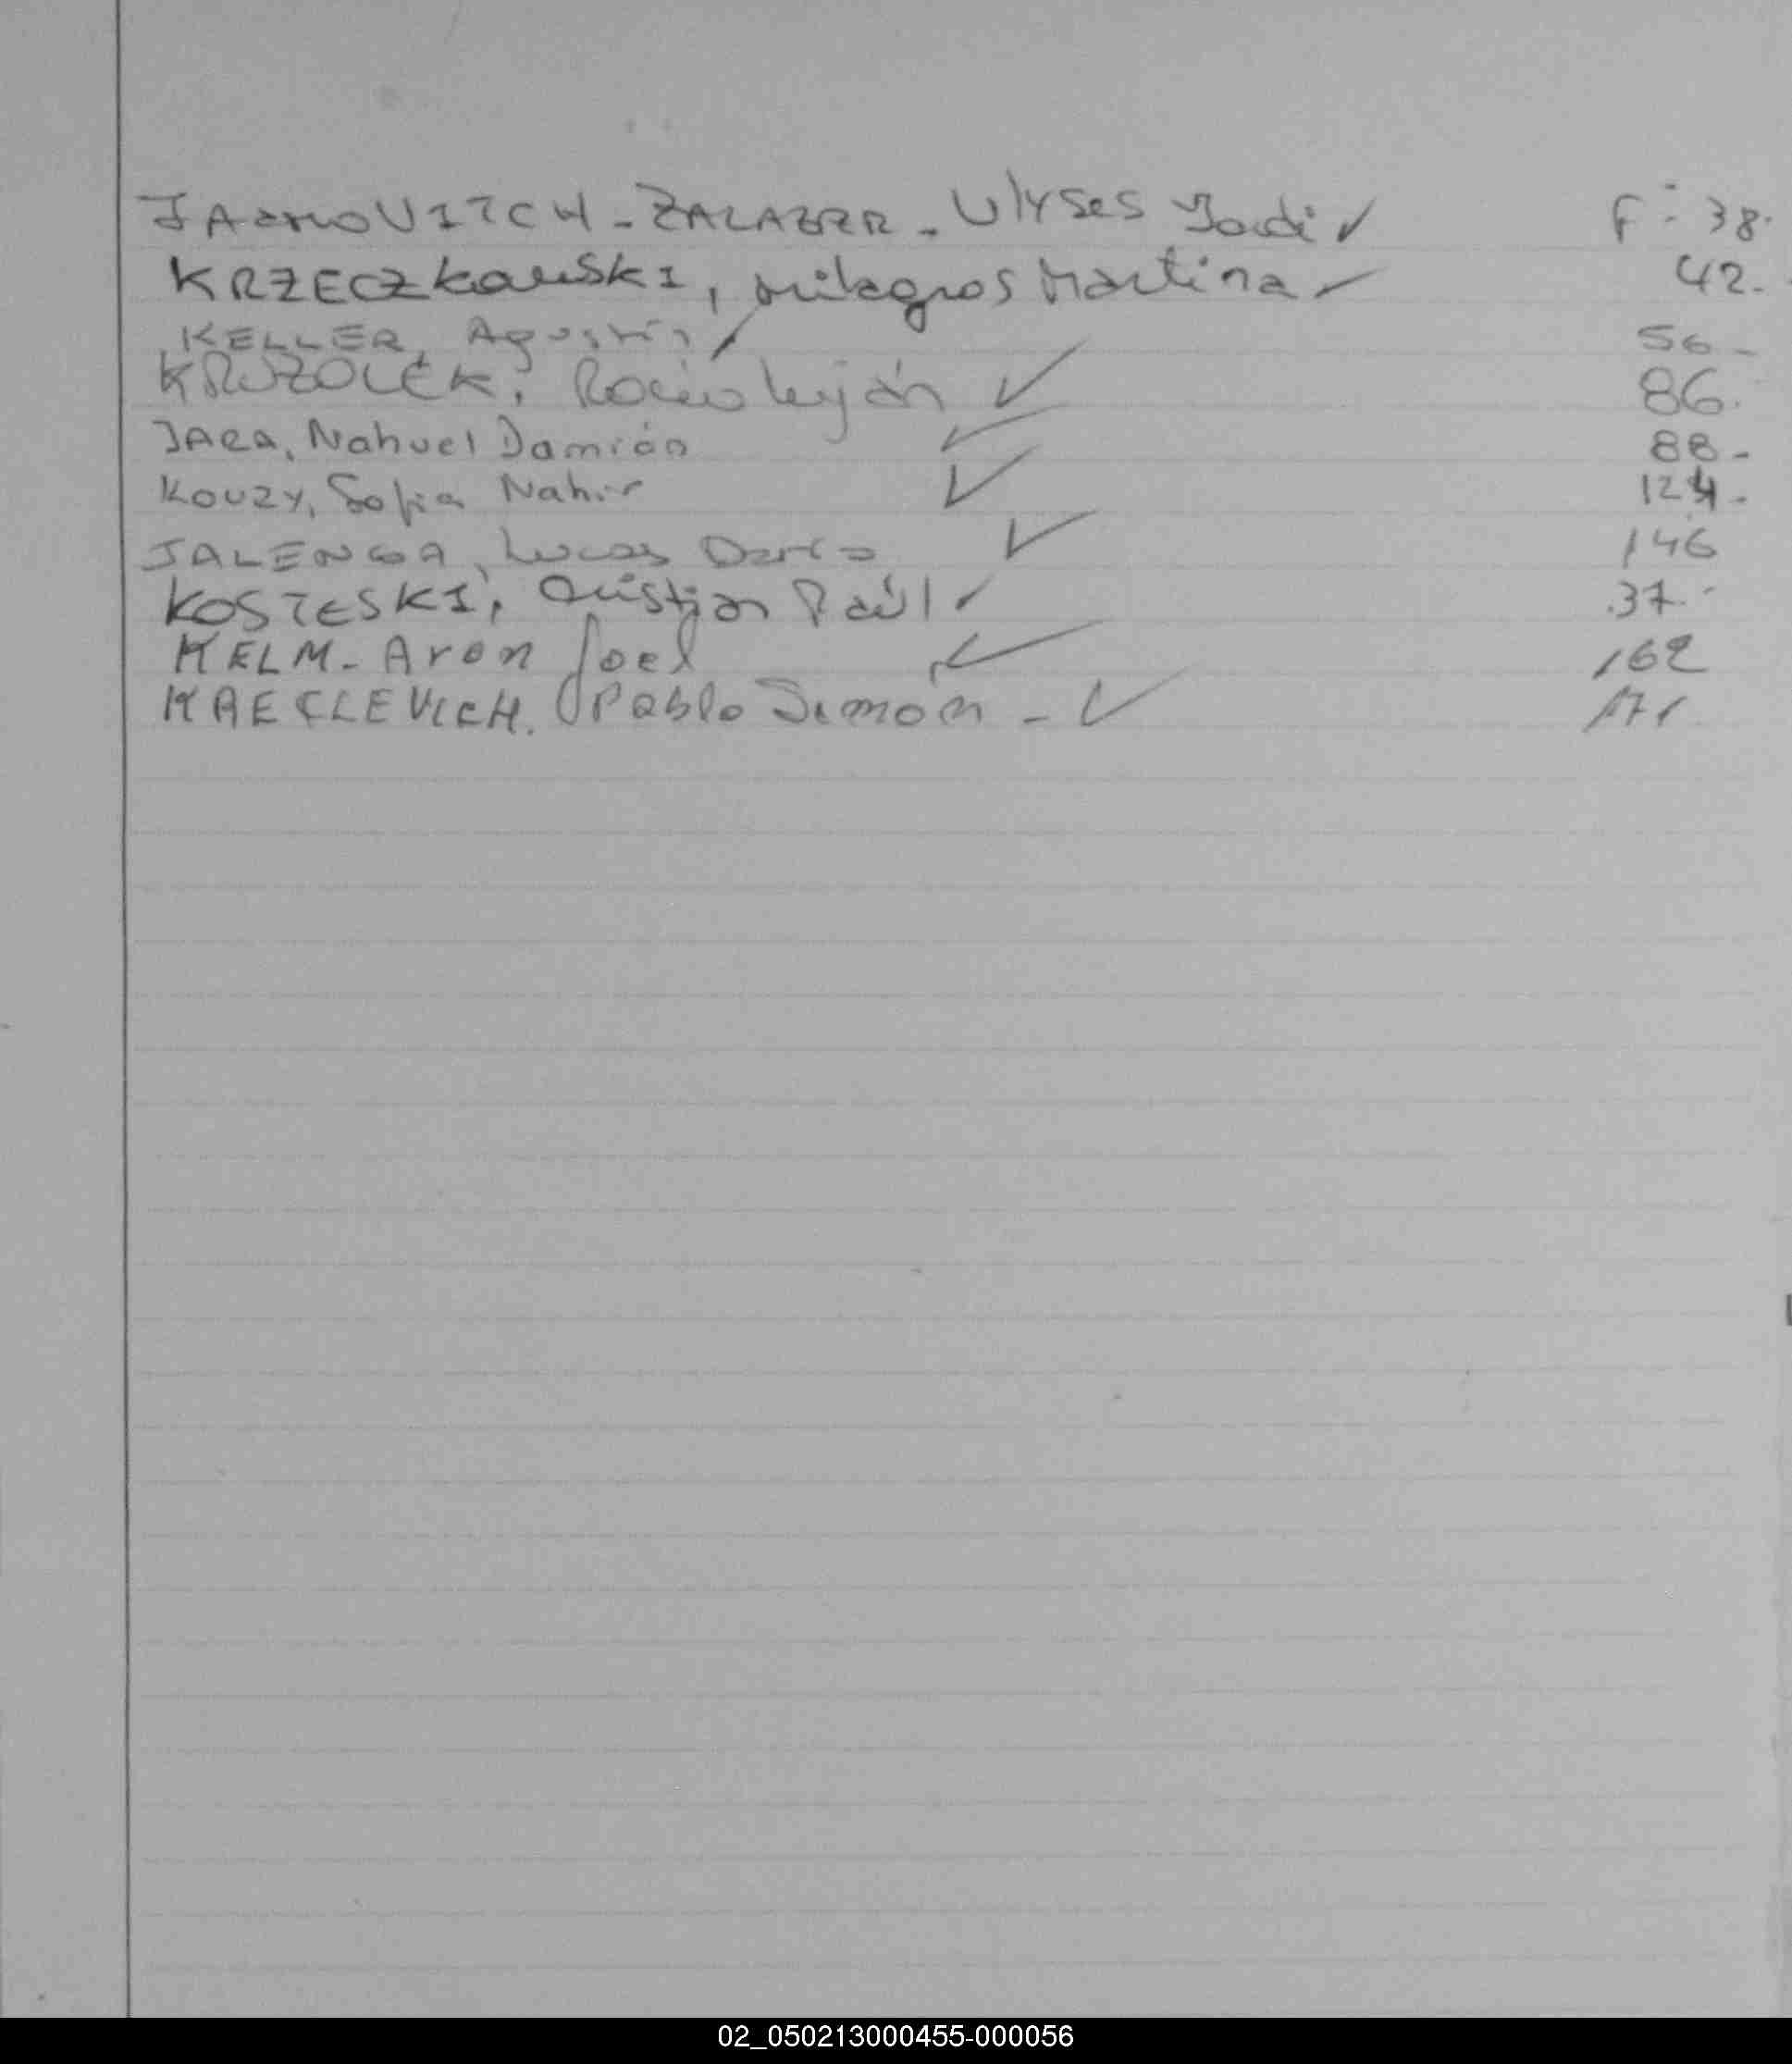 JAZNOVITCH - ZALAZAR - Ulyses Jordi ✓ F - 38.
KRZECZkowSkI, milagros Martina ✓ 42.
KELLER, Agustín ✓ 56 -
KRUZOLEK, Rocío Luján ✓ 86.
JARA, Nahuel Damián ✓ 88 -
KOUZY, Sofia Nahir ✓ 124 -
JALENGA, Lucas Darío ✓ 146
KOSTESKI, Cristian Raúl ✓ 37 -
KELM - Aron Joel ✓ 162
Pablo Simón - ✓ 171
02_050213000455-000056